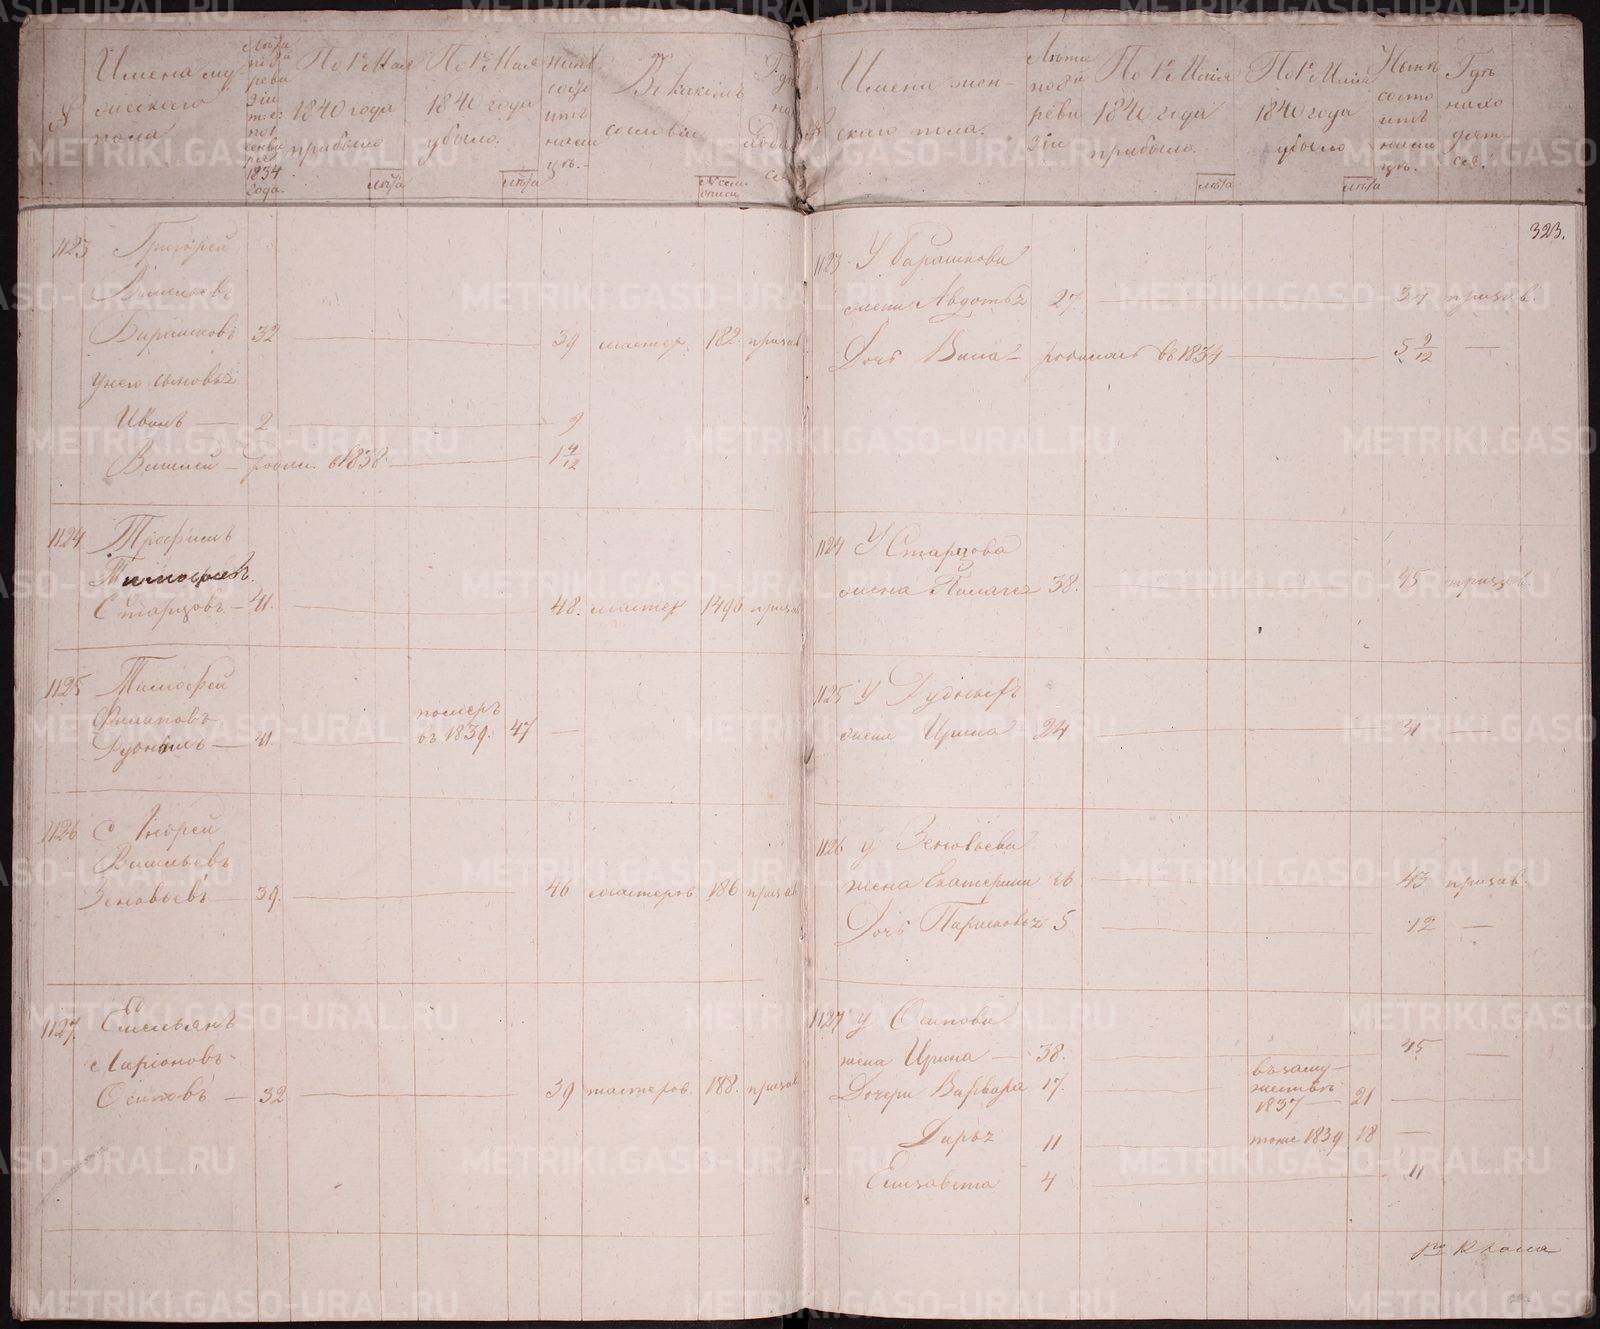 №
Имена му
жескаго
пола
Лѣта
по 8й
реви
зіи
1834
года.
По 1е Мая
1840 года
прибыло
лѣта
По 1е Мая
1840 года
убыло.
лѣта
Нынѣ
состо
итъ
нали
цо.
Въ какомъ
сословіи
№ семи
описи
1123
Григорей
Барашковъ 32 39 мастер. 182. при зав
у него сыновья
Иванъ 2 9
Василей родил. в 1838 1 4/12
1124
Трофимъ
Тимофѣевъ.
Старцовъ 41. 48. мастер 1496 при зав
1125
Тимофей
Филиповъ
41. померъ
въ 1839. 47
1126
Андрей
Васильевъ
Зеновьевъ 39. 46 мастеров 186 при зав
1127.
Емельянъ
Ларіоновъ
Осиповъ 32 39 мастеров. 188. при зав
Имена жен-
скаго пола.
Лѣта
по 8й
реви
зіи
По 1е Маія
1840 года
прибыло.
лѣта
По 1е Маія
1840 года
убыло
лѣта
Нынѣ
состо
итъ
нали
цо.
Гдѣ
нахо
дят
ся.
323.
1123 У Барашкова
жена Авдотья 27 34 при зав.
Дочь родилась въ 1834 5 9/12
1124 У Старцова
жена Пелагея 38. 45 при зав.
1125 У
жена Ирина 24 31
1126 у Зеновьева
жена Екатерина 36 43 при зав.
Дочь Парасковья 5 12
1127 у Осипова
жена Ирина 38. 45
Дочери Варвара 17. въ заму-
жествѣ
1837 21
Дарья 11 тоже 1839 18
Елизавета 4 11